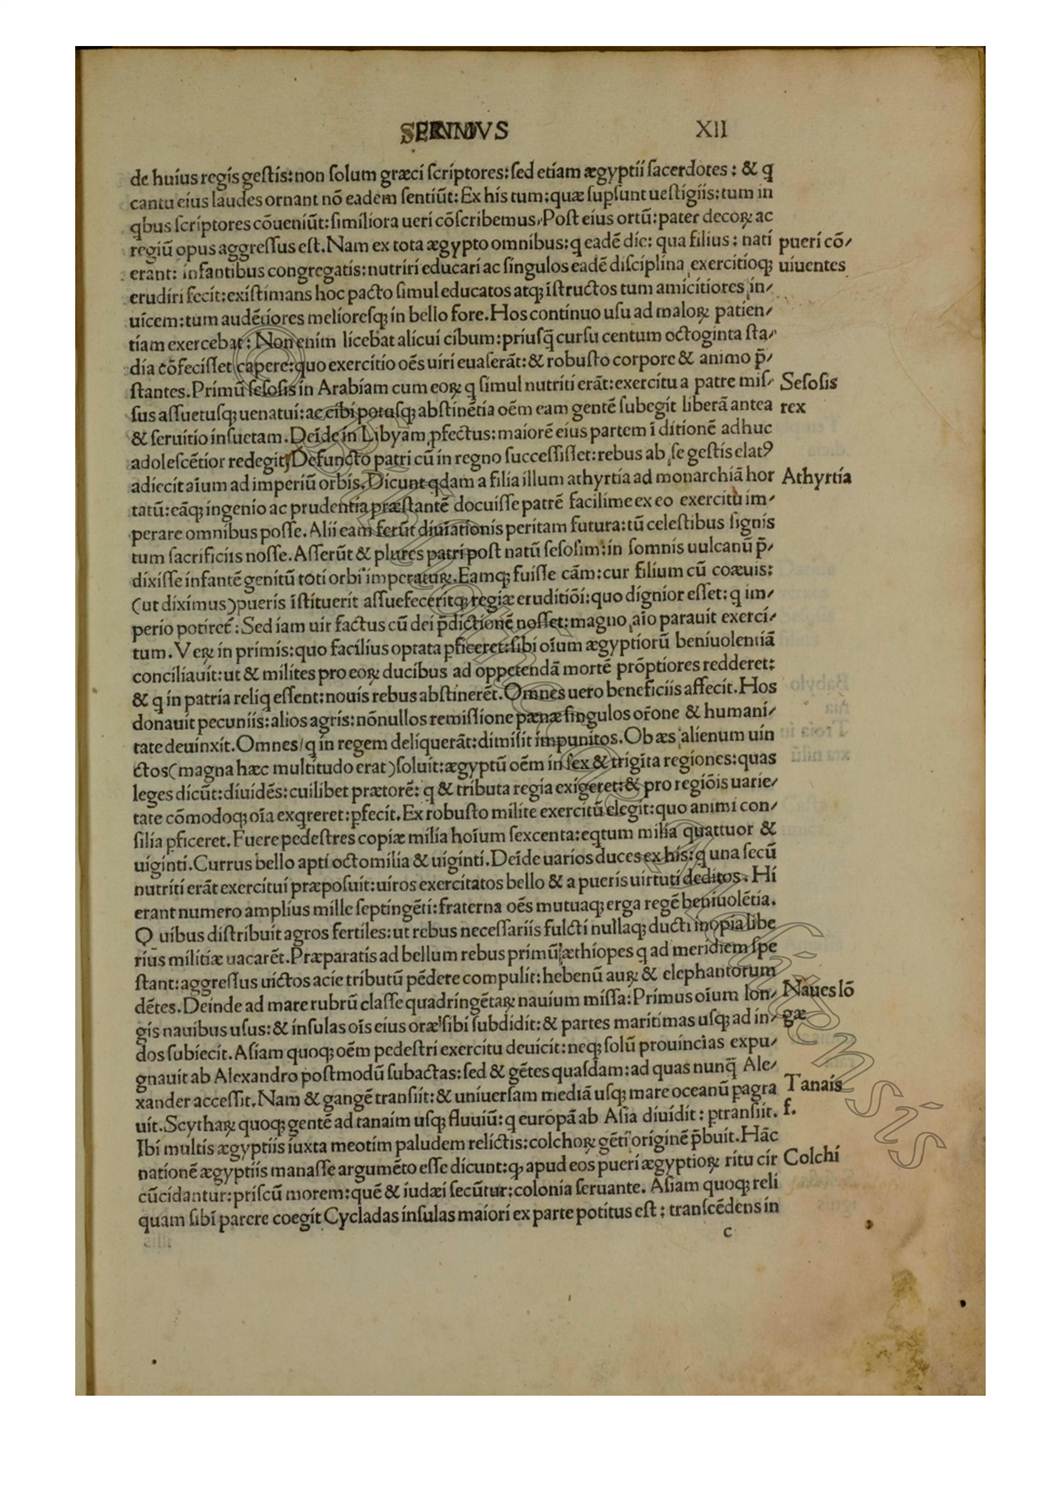 XII
de huius regis gestis: non solum græci scriptores: sed etiam ægyptii sacerdotes: & q
cantu eius laudes ornant nō eadem sentiūt: Ex his tum: quæ supsunt uestigiis: tum in
qbus scriptores cōueniūt: similiora ueri cōscribemus. Post eius ortū: pater decoꝝ ac
regiū opus aggressus est. Nam ex tota ægypto omnibus: q eadē die: qua filius: nati
pueri cō/
erāt: infantibus congregatis: nutriri educari ac singulos eadē disciplina exercitioqꝫ
uiuentes
erudiri fecit: existimans hoc pacto simul educatos atqꝫ īstructos tum amicitiores in/
uicem: tum audētiores melioresqꝫ in bello fore. Hos continuo usu ad maloꝝ patien/
tiam exercebat: Non enim licebat alicui cibum: priusq̄ cursu centum octoginta sta/
dia cōfecisset capere: quo exercitio oēs uiri euaserāt: & robusto corpore & animo p̄/
stantes. Primū sesosis in Arabiam cum eoꝝ q simul nutriti erāt: exercitu a patre mis/
Sesosis
sus assuetusqꝫ uenatui: ac cibi potusqꝫ abstinētia oēm eam gentē subegit liberā antea
rex
& seruitio insuetam. Deīde in Libyam ꝓfectus: maiorē eius partem ī ditionē adhuc
adolescētior redegit. Defuncto patri cū in regno successisset: rebus ab se gestis elatꝰ
adiecit aīum ad imperiū orbis. Dicunt qdam a filia illum athyrtia ad monarchiā hor
Athyrtia
tatū: eāqꝫ ingenio ac prudentia præstantē docuisse patrē facilime ex eo exercitu im/
perare omnibus posse. Alii eam ferūt diuiationis peritam futura: tū celestibus signis
tum sacrificiis nosse. Asserūt & plures patri post natū sesosim: in somnis uulcanū p̄/
dixisse infantē genitū toti orbi imperatuꝝ. Eamqꝫ fuisse cām: cur filium cū coæuis:
(ut diximus) pueris īstituerit assuefeceritqꝫ regiæ eruditiōi: quo dignior esset: q im/
perio potiret̄: Sed iam uir factus cū dei p̄dictionē nosset: magno aīo parauit exerci/
tum. Veꝝ in primis: quo facilius optata pficeret: sibi oīum ægyptiorū beniuolentiā
conciliauit: ut & milites pro eoꝝ ducibus ad oppetendā mortē prōptiores redderet:
& q in patria reliq essent: nouis rebus abstinerēt. Omnes uero beneficiis affecit. Hos
donauit pecuniis: alios agris: nōnullos remissione pænæ singulos or̄one & humani/
tate deuinxit. Omnes q in regem deliquerāt: dimisit impunitos. Ob æs alienum uin
ctos (magna hæc multitudo erat) soluit: ægyptū oēm in sex & trigīta regiones: quas
leges dicūt: diuidēs: cuilibet prætorē: q & tributa regia exigeret: & pro regiōis uarie/
tate cōmodoqꝫ oīa exqreret: pfecit. Ex robusto milite exercitū elegit: quo animi con/
silia pficeret. Fuere pedestres copiæ milia hoīum sexcenta: eqtum milia quattuor &
uiginti. Currus bello apti octomilia & uiginti. Deīde uarios duces ex his: q una secū
nutriti erāt exercitui præposuit: uiros exercitatos bello & a pueris uirtuti deditos. Hi
erant numero amplius mille septingēti: fraterna oēs mutuaqꝫ erga regē beniuolētia.
Quibus distribuit agros fertiles: ut rebus necessariis fulcti nullaqꝫ ducti inopia libe
rius militiæ uacarēt. Præparatis ad bellum rebus primū æthiopes q ad meridiem spe
stant: aggressus uictos acie tributū pēdere compulit: hebenū auꝝ & elephantorum
dētes. Deinde ad mare rubrū classe quadringētaꝝ nauium missa: Primus oīum lon/
Naues lō
gis nauibus usus: & insulas oīs eius oræ sibi subdidit: & partes maritimas usqꝫ ad in/
gæ
dos subiecit. Asiam quoqꝫ oēm pedestri exercitu deuicit: neqꝫ solū prouincias expu/
gnauit ab Alexandro postmodū subactas: sed & gētes quasdam: ad quas nunq̄ Ale/
xander accessit. Nam & gangē transiit: & uniuersam mediā usqꝫ mare oceanū pagra
Tanais
uit. Scythaꝝ quoqꝫ gentē ad tanaim usqꝫ fluuiū: q europā ab Asia diuidit: ptransiit.
f.
Ibi multis ægyptiis iuxta meotim paludem relictis: colchoꝝ gēti originē p̄buit. Hāc
nationē ægyptiis manasse argumēto esse dicunt: qꝫ apud eos pueri ægyptioꝝ ritu cir
Colchi
cūcidantur: priscū morem: quē & iudæi secūtur: colonia seruante. Asiam quoqꝫ reli
quam sibi parere coegit Cycladas insulas maiori ex parte potitus est: transcēdens in
c